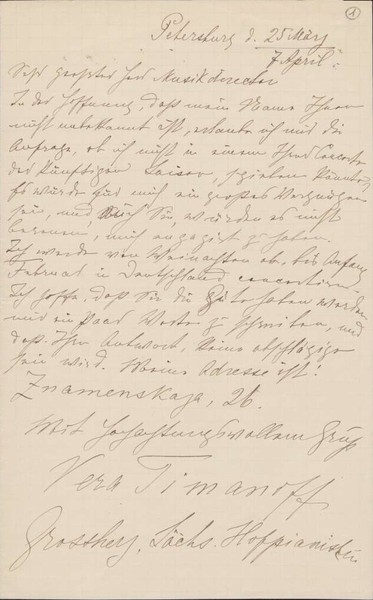 1
Petersburg d. 25 März
7 April.
Sehr geehrter Herr Musikdirector
In der Hoffnung, daß mein Name Ihnen
nicht unbekannt ist, erlaube ich mir die
Anfrage, ob ich nicht in einem Ihrer Concerte
der künftigen Saison, spielen könnte,
Es würde für mich ein großes Vergnügen
sein, und auch Sie, würden es nicht
bereuen, mich engagirt zu haben.
Ich werde von Weinachten ab, bis Anfang
Februar in Deutschland concertiren.
Ich hoffe, daß Sie die Güte haben werden
mir ein Paar Worte zu schreiben, und
daß Ihre Antwort, keine abschlägige
sein wird. Meine Adresse ist:
Znamenskaja, 26.
Mit hochachtungsvollem Gruß
Vera Timanoff
Grossherz. Sächs. Hofpianistin